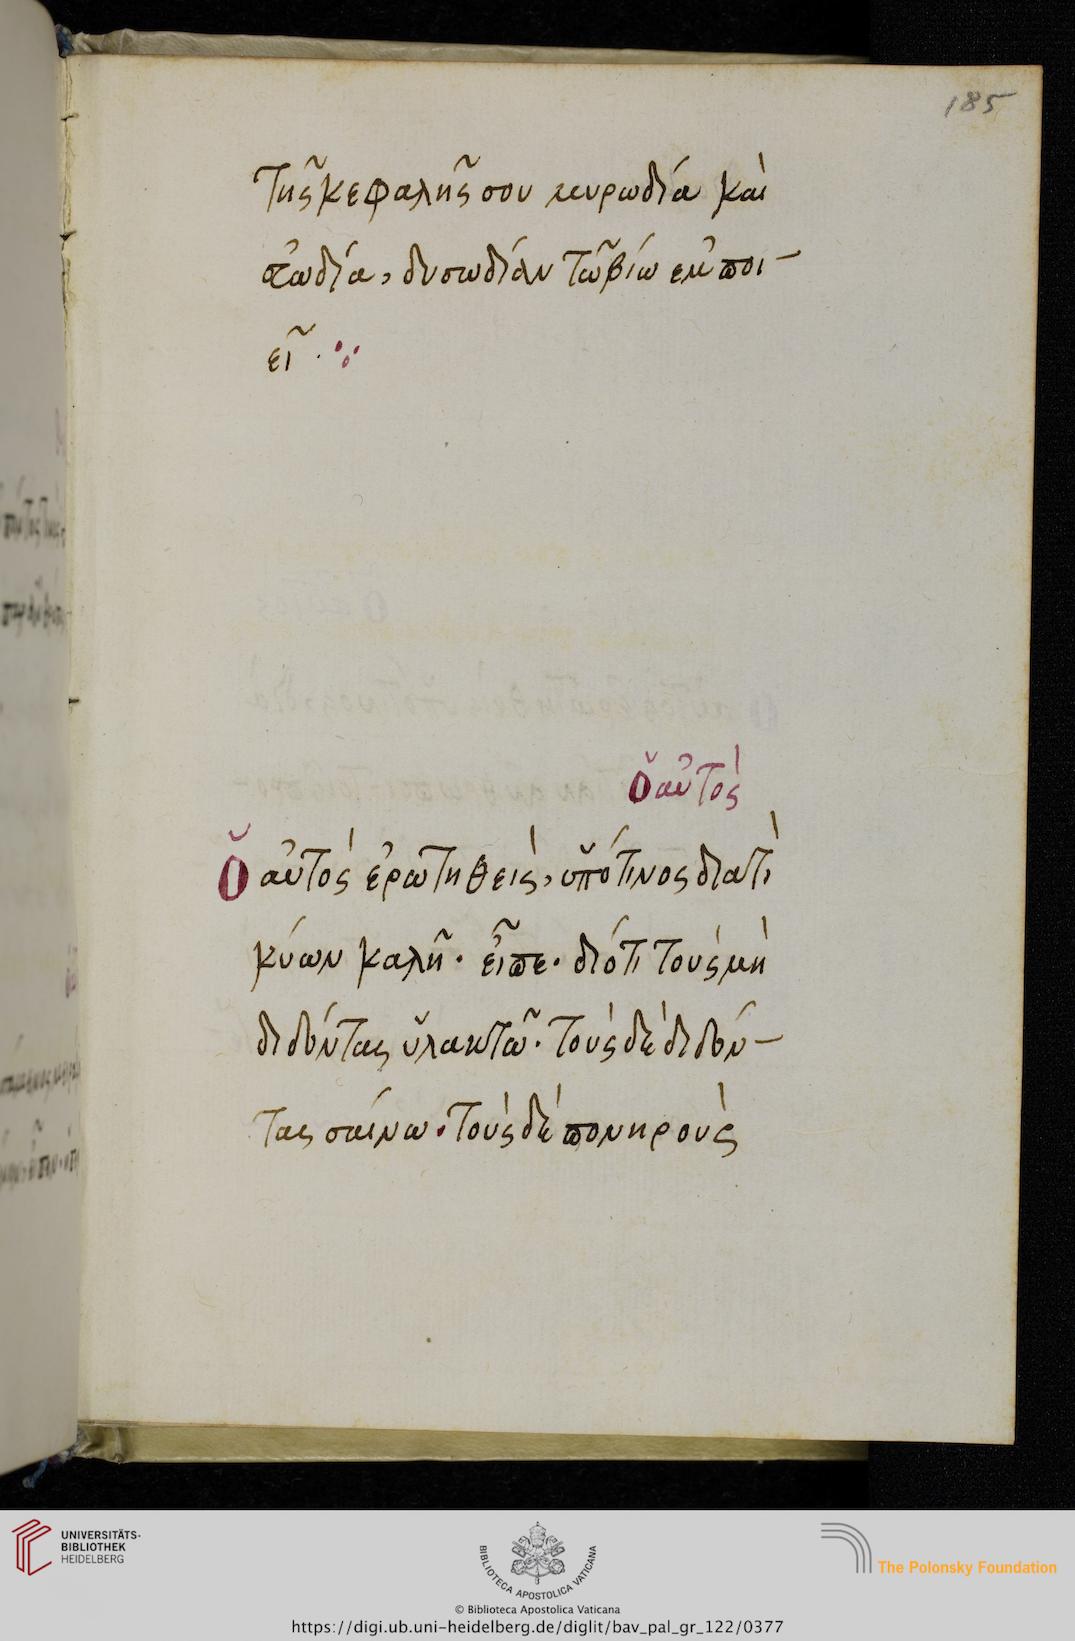 185
τῆς κεφαλῆς σου μυρωδία καὶ
εὐωδία, δυσωδίαν τῶ βίω ἐμποι-
εῖ ·
ὁ αὐτὸς
Ὁ αὐτὸς ἐρωτηθεὶς, ὑπό τινος διατὶ
κύων καλῆ · εἶπε · διότι τοὺς μὴ
διδόντας ὑλακτῶ · τοὺς δὲ διδόν-
τας σαίνω · τοὺς δὲ πονηροὺς
UNIVERSITÄTS-
BIBLIOTHEK
HEIDELBERG
BIBLIOTECA APOSTOLICA VATICANA
The Polonsky Foundation
© Biblioteca Apostolica Vaticana
https://digi.ub.uni-heidelberg.de/diglit/bav_pal_gr_122/0377